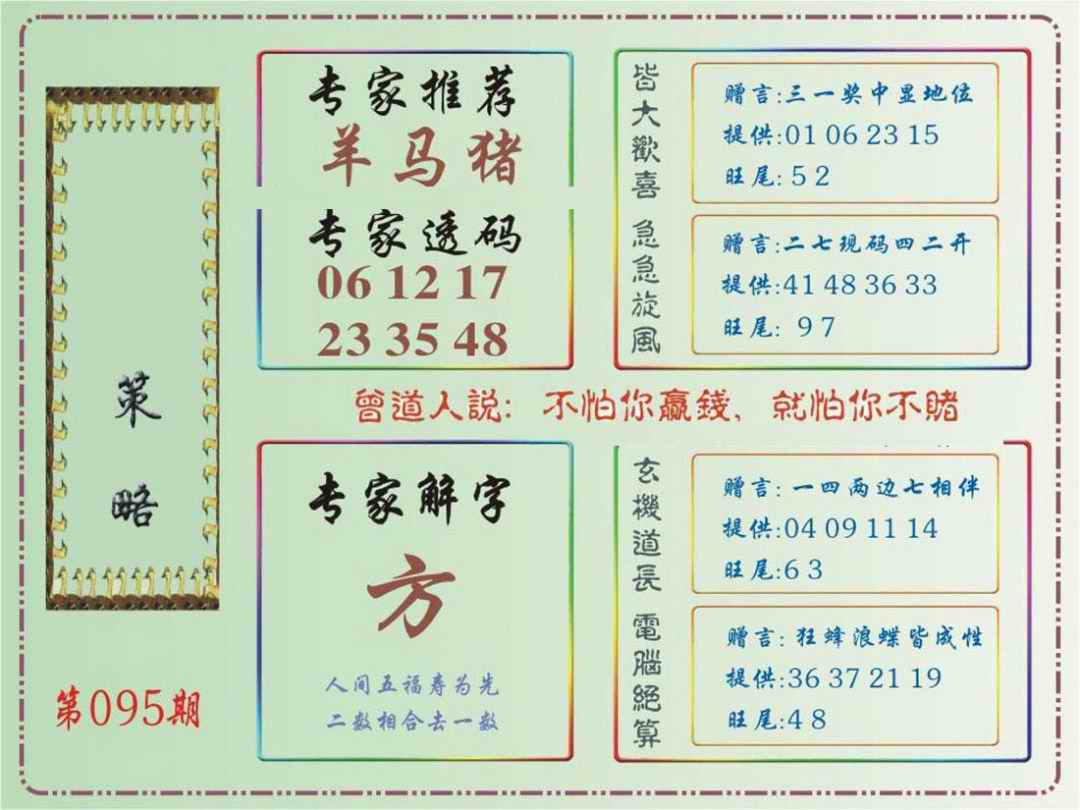 策
略
第095期
专家推荐
羊马猪
专家透码
06 12 17
23 35 48
皆大歡喜
赠言:三一奖中显地位
提供:01 06 23 15
旺尾: 5 2
急急旋風
赠言:二七现码四二开
提供:41 48 36 33
旺尾: 9 7
曾道人説: 不怕你赢錢, 就怕你不賭
专家解字
方
人间五福寿为先
二数相合去一数
玄機道長
赠言: 一四两边七相伴
提供:04 09 11 14
旺尾:6 3
電腦絕算
赠言: 狂蜂浪蝶皆成性
提供:36 37 21 19
旺尾:4 8